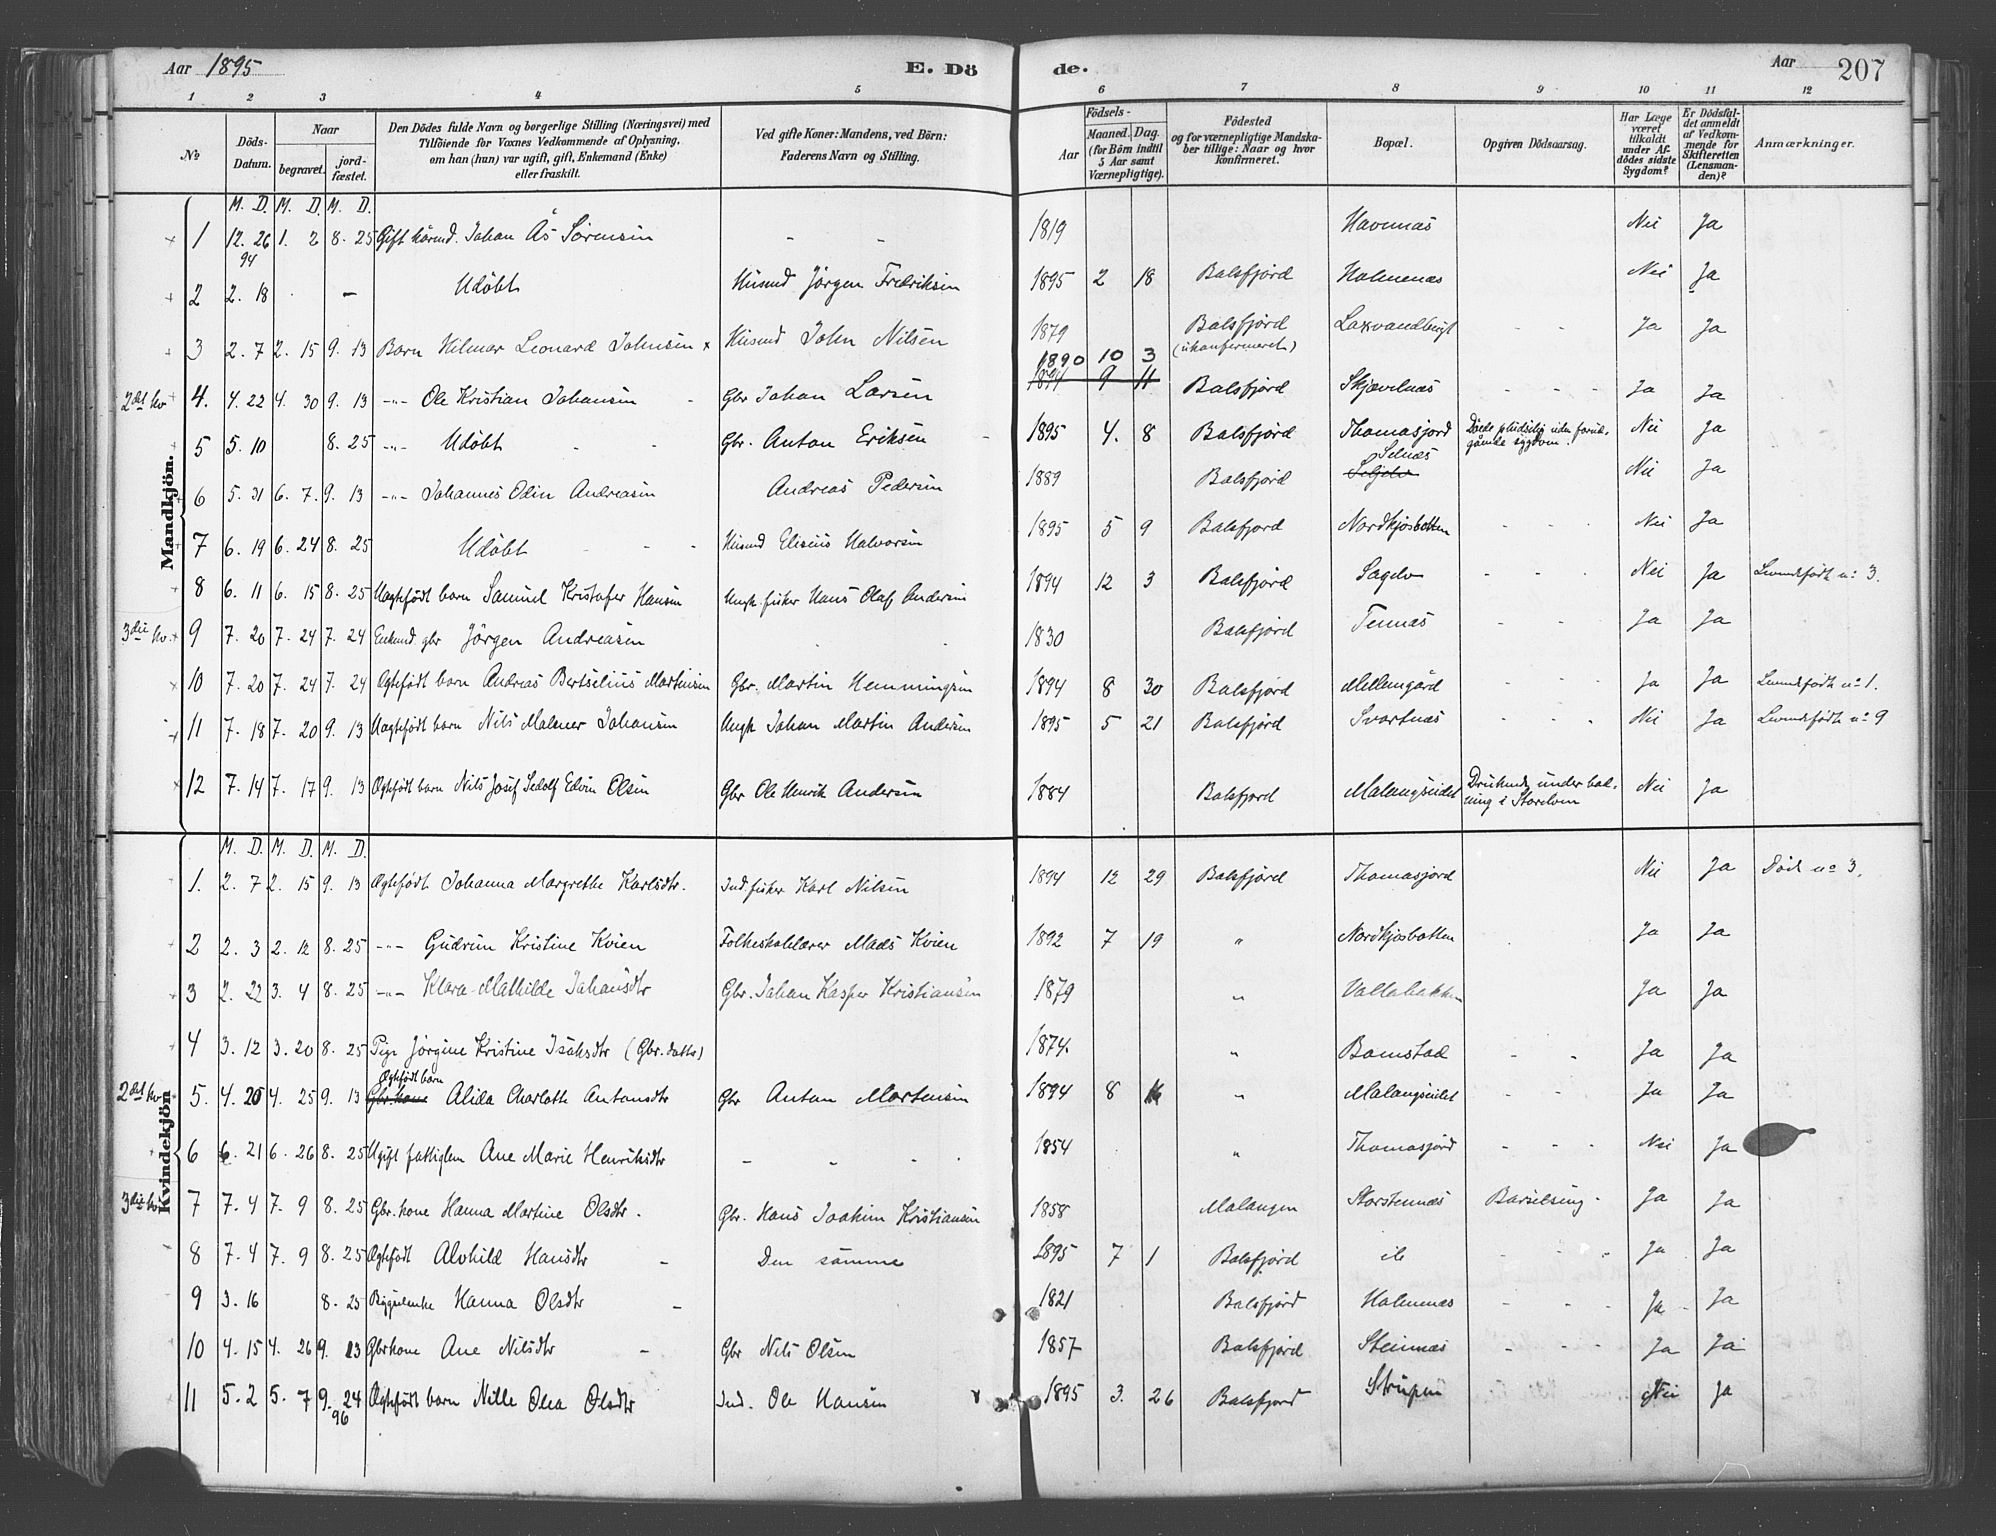 Aar 1895 E. Dö de. Aar 207
1 2 3 4 5 6 7 8 9 10 11 12
No Döds-Datum. Naar begravet. jordfæstet. Den Dödes fulde Navn og borgerlige Stilling (Næringsvei) med Tilföiende for Voxnes Vedkommende af Oplysning, om han (hun) var ugift, gift, Enkemand (Enke) eller fraskilt. Ved gifte Koner: Mandens, ved Börn: Faderens Navn og Stilling. Födsels- Aar Maaned. Dag. (for Börn indtil 5 Aar samt Værnepligtige). Födested og for værnepligtige Mandskaber tillige: Naar og hvor konfirmeret. Bopæl. Opgiven Dödsaarsag. Har Læge været tilkaldt under Afdödes sidste Sygdom? Er Dödsfaldet anmeldt af Vedkommende for Skifteretten (Lensmanden)? Anmærkninger.
Mandkjön.
M. D. M. D. M. D.
1 12. 26 94 1. 2 8. 25 Gift Johan Ås Sörensen - - 1819 Havnnæs Nei Ja
2 2. 18 - Udöbt Husmd Jörgen Fredriksen 1895 2 18 Balsfjord Holmenæs Nei Ja
3 2. 7 2. 15 9. 13 Barn Hilmar Leonard Johnsen x Husmd John Nilsen 1879 Balsfjord (ukonfirmeret) Laxvandbugt - - Ja Ja
1890 10 3
2det kv 4. 4. 22 4. 30 9. 13 -"- Ole Kristian Johansen Gbr Johan Larsen 9 11 Balsfjord Skjævelnæs - - - Ja Ja
5 5. 10 8. 25 -"- Udöbt Gbr. Anton Eriksen 1895 4. 8 Balsfjord Thomasjord Döede pludselig uden forudgåemde sygdom. Nei Ja
6 5. 31 6. 7. 9. 13 -"- Johannes Odin Andreasen Andreas Pedersen 1889 Balsfjord Selnæs Seljelv Nei Ja
7 6. 19 6. 24 8. 25 Udöbt Husmd Elisius Halvorsen 1895 5 9 Balsfjord Nordkjosbotten - - - Nei Ja
8 6. 11 6. 15 8. 25 Uægtefödt barn Samuel Kristofer Hansen Ungk. fisker Hans Olaf Andersen 1894 12 3 Balsfjord Sagelv - - - Nei Ja Levendefödt no 3.
3die kv. 9 7. 20 7. 24 7. 24 Enkmd gbr Jörgen Andreasen 1830 Balsfjord Tennæs - - - Ja Ja
10 7. 20 7. 24 7. 24 Ægtefödt barn Andreas Bertselius Martinsen Gbr. Martin Hemmingsen 1894 8 30 Balsfjord Mellemgård - - - Ja Ja Levendefödt no 1.
11 7. 18 7. 20 9. 13 Uægtefödt barn Nils Malmer Johansen Ungk Johan Martin Andersen 1895 5 21 Balsfjord Svartnæs - - - Nei Ja Levendefödt no 9
12 7. 14 7. 17 9. 13 Ægtefödt barn Nils Josef Sedolf Edvin Olsen Gbr Ole Henrik Andersen 1884 Balsfjord Malangseidet Druknede under badning i Storelven Nei Ja
Kvindekjön
M. D. M. D. M. D.
1. 2. 7 2. 15 9. 13 Ægtefödt Johanna Margrethe Karlsdtr. Ind. fisker Karl Nilsen 1894 12 29 Balsfjord Thomasjord Nei Ja Död no 3.
2 2. 3 2. 12 8. 25 -"- Gudrun Kristine Kvien Folkeskolelærer Mads Kvien 1892 7 19 " Nordkjosbotten Ja Ja
3 2. 22 3. 4 8. 25 -"- Klara Mathilde Johansdtr Gbr. Johan Kasper Kristiansen 1879 " Vollabakken Ja Ja
4 3. 12 3. 20 8. 25 Pige Jörgine Kristine Isaksdtr (Gbr. datter) 1874. " Bomstad - - Ja Ja
Ægtefödt barn
2det kv 5. 4. 20 4. 25 9. 13 Gbr. kone Alida Charlotte Antonsdtr Gbr Anton Mortensen 1894 8 " Malangseidet - - Ja Ja
6 6. 21 6. 26 8. 25 Ugift fattiglem Ane Marie Henriksdtr - - - 1854 " Thomasjord - - Nei Ja
3die kv 7 7. 4 7. 9 8. 25 Gbr. kone Hanna Martine Olsdtr. Gbr. Hans Joakim Kristiansen 1858 Malangen Storstennæs Barselseng. Ja Ja
8 7. 4 7. 9 8. 25 Ægtefödt Alvhild Hansdtr - Den samme 1895 7 1 Balsfjord - - - Ja Ja
9 3. 16 8. 25 Hanna Olsdtr - 1821 Balsfjord Holmenæs - - - Ja Ja
10 4. 15 4. 26 9. 13 Gbrkone Ane Nilsdtr - Gbr Nils Olsen 1857 Balsfjord Stennæs - - - Ja Ja
11 5. 2 5. 7 9. 24 96 Ægtefödt barn Nille Olea Olsdtr Ind. Ole Hansen 1895 3. 26 Balsfjord Strupen Nei Ja